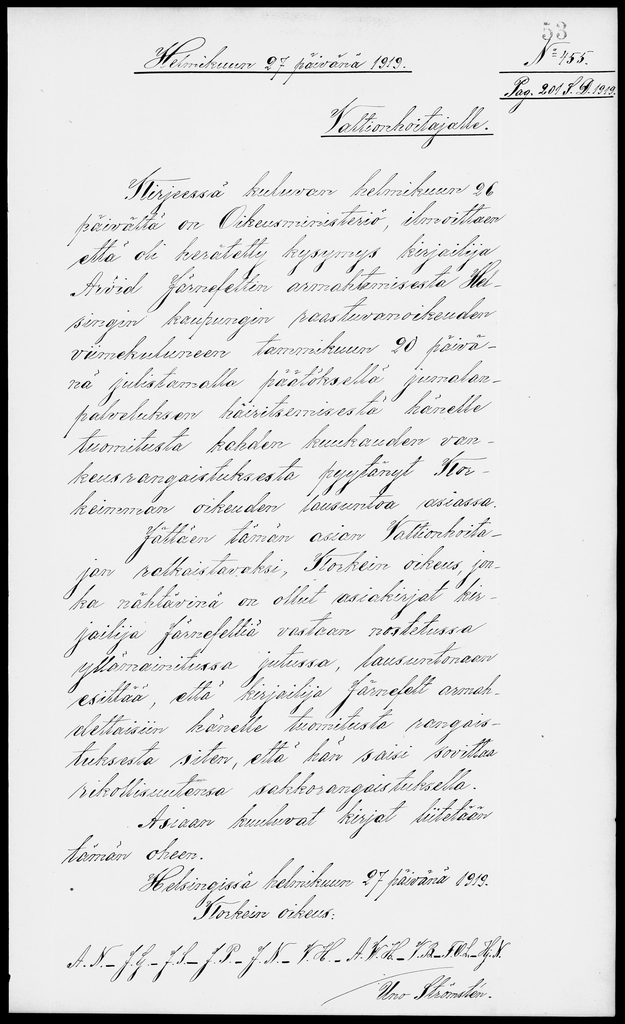 53
Helmikuun 27 päivänä 1919.
No 455.
Pag. 201 S. D. 1919.
Valtionhoitajalle.
Kirjeessä kuluvan helmikuun 26
päivältä on Oikeusministeriö, ilmoittaen
että oli herätetty kysymys kirjailija
Arvid Järnefeltin armahtamisesta Hel-
singin kaupungin raastuvanoikeuden
viimekuluneen tammikuun 20 päivä-
nä julistamalla päätöksellä jumalan-
palveluksen häiritsemisestä hänelle
tuomitusta kahden kuukauden van-
keusrangaistuksesta pyytänyt Kor-
keimman oikeuden lausuntoa asiassa.
Jättäen tämän asian Valtionhoita-
jan ratkaistavaksi, Korkein oikeus, jon-
ka nähtävinä on ollut asiakirjat kir-
jailija Järnefeltiä vastaan nostetussa
yllämainitussa jutussa, lausuntonaan
esittää, että kirjailija Järnefelt armah-
dettaisiin hänelle tuomitusta rangais-
tuksesta siten, että hän saisi sovittaa
rikollisuutensa sakkorangaistuksella.
Asiaan kuuluvat kirjat liitetään
tämän oheen.
Helsingissä helmikuun 27 päivänä 1919.
Korkein oikeus:
A. N. – J. G. – J. S. – J. P. – J. N. – V. H. – A. W. H. – V. B. – F. O. L. – Hj. N.
Uno Strömsten.